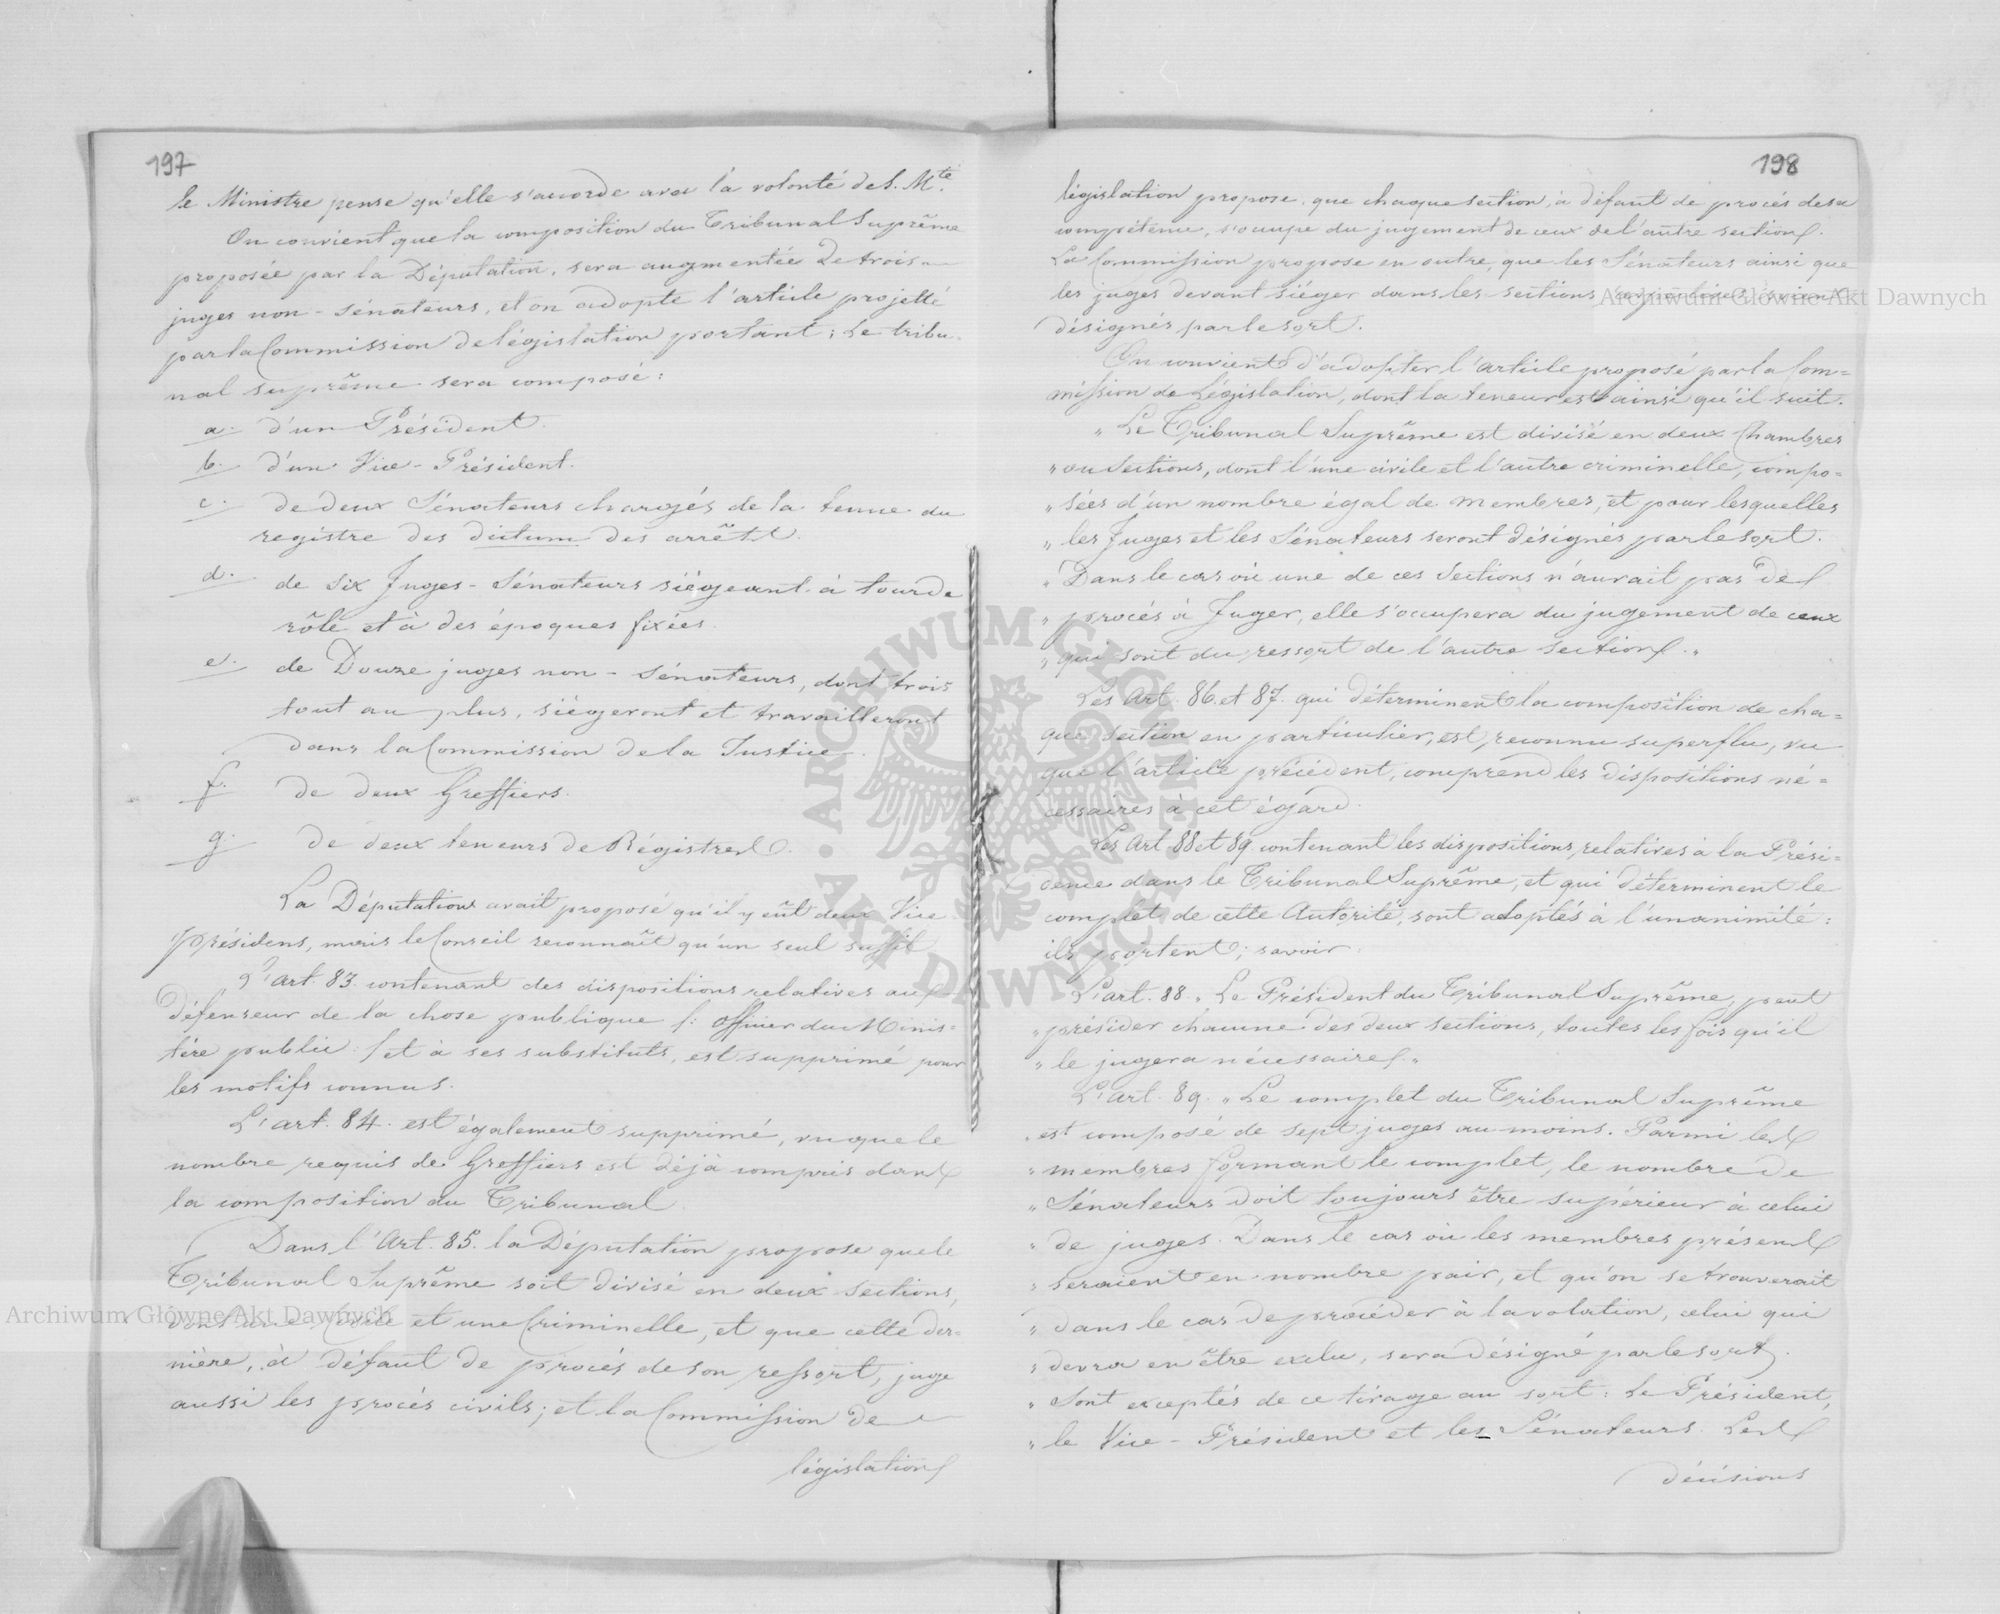 197
le Ministre pense qu'elle s'accorde avec la volonté de S. Mté.
On convient que la composition du Tribunal Suprême
proposée par la Députation, sera augmentée de trois
juges non-sénateurs, et on adopte l'article projetté
par la Commission de législation portant: Le tribu-
nal suprême sera composé:
a. d'un Président.
b. d'un Vice-Président.
c. de deux Sénateurs chargés de la tenue du
registre des dictum des arrêts.
d. de six Juges-Sénateurs siégeant à tour de
rôle et à des époques fixées.
e. de Douze juges non-sénateurs, dont trois
tout au plus, siégeront et travailleront
dans la Commission de la Justice.
f. de deux Greffiers.
g. de deux teneurs de Régistres.
La Députation avait proposé qu'il y eût deux Vice
présidens, mais le Conseil reconnaît qu'un seul suffit
L'art. 83. contenant des dispositions relatives au
défenseur de la chose publique /: officier du Minis=
tère public :/ et à ses substituts, est supprimé pour
les motifs connus.
L'art. 84. est également supprimé, vu que le
nombre requis de Greffiers est déjà compris dans
la composition du Tribunal.
Dans l'Art. 85. la Députation propose que le
Tribunal Suprême soit divisé en deux sections,
dont une Civile et une Criminelle, et que cette der=
nière, à défaut de procés de son ressort, juge
aussi les procés civils; et la Commission de
législation
198
législation propose que chaque section, à défaut de procés de sa
compétence, s'occupe du jugement de ceux de l'autre section.
La Commission propose en outre, que les Sénateurs ainsi que
les juges devant siéger dans les sections soient
désignés par le sort.
On convient d'adopter l'article proposé par la Com=
mission de Législation, dont la teneur est ainsi qu'il suit.
" Le Tribunal Suprême est divisé en deux Chambres
" ou Sections, dont l'une civile et l'autre criminelle, compo=
" sées d'un nombre égal de membres, et pour lesquelles
" les Juges et les Sénateurs seront désignés par le sort.
" Dans le cas où une de ces Sections n'aurait pas de
" procés à Juger, elle s'occupera du jugement de ceux
" qui sont du ressort de l'autre section. "
Les Art. 86. et 87. qui déterminent la composition de cha=
que section en particulier, est reconnu superflu, vu
que l'article précédent, comprend les dispositions né=
cessaires à cet égard.
Les Art. 88 et 89 contenant les dispositions relatives à la Prési=
dence dans le Tribunal Suprême, et qui déterminent le
complet de cette Autorité, sont adoptés à l'unanimité:
ils portent; savoir:
L'art. 88. " Le Président du Tribunal Suprême, peut
" présider chacune des deux sections, toutes les fois qu'il
" le jugera nécessaire. "
L'art. 89. " Le complet du Tribunal Suprême
" est composé de sept juges au moins. Parmi les
" membres formant le complet, le nombre de
" Sénateurs doit toujours être supérieur à celui
" de juges. Dans le cas où les membres présens
" seraient en nombre pair, et qu'on se trouverait
" dans le cas de procéder à la votation, celui qui
" devra en être exclu, sera désigné par le sort.
" Sont exceptés de ce tirage au sort: Le Président,
" le Vice-Président et les Sénateurs. Les
décisions
Archiwum Główne Akt Dawnych
Archiwum Główne Akt Dawnych
ARCHIWUM GŁÓWNE AKT DAWNYCH